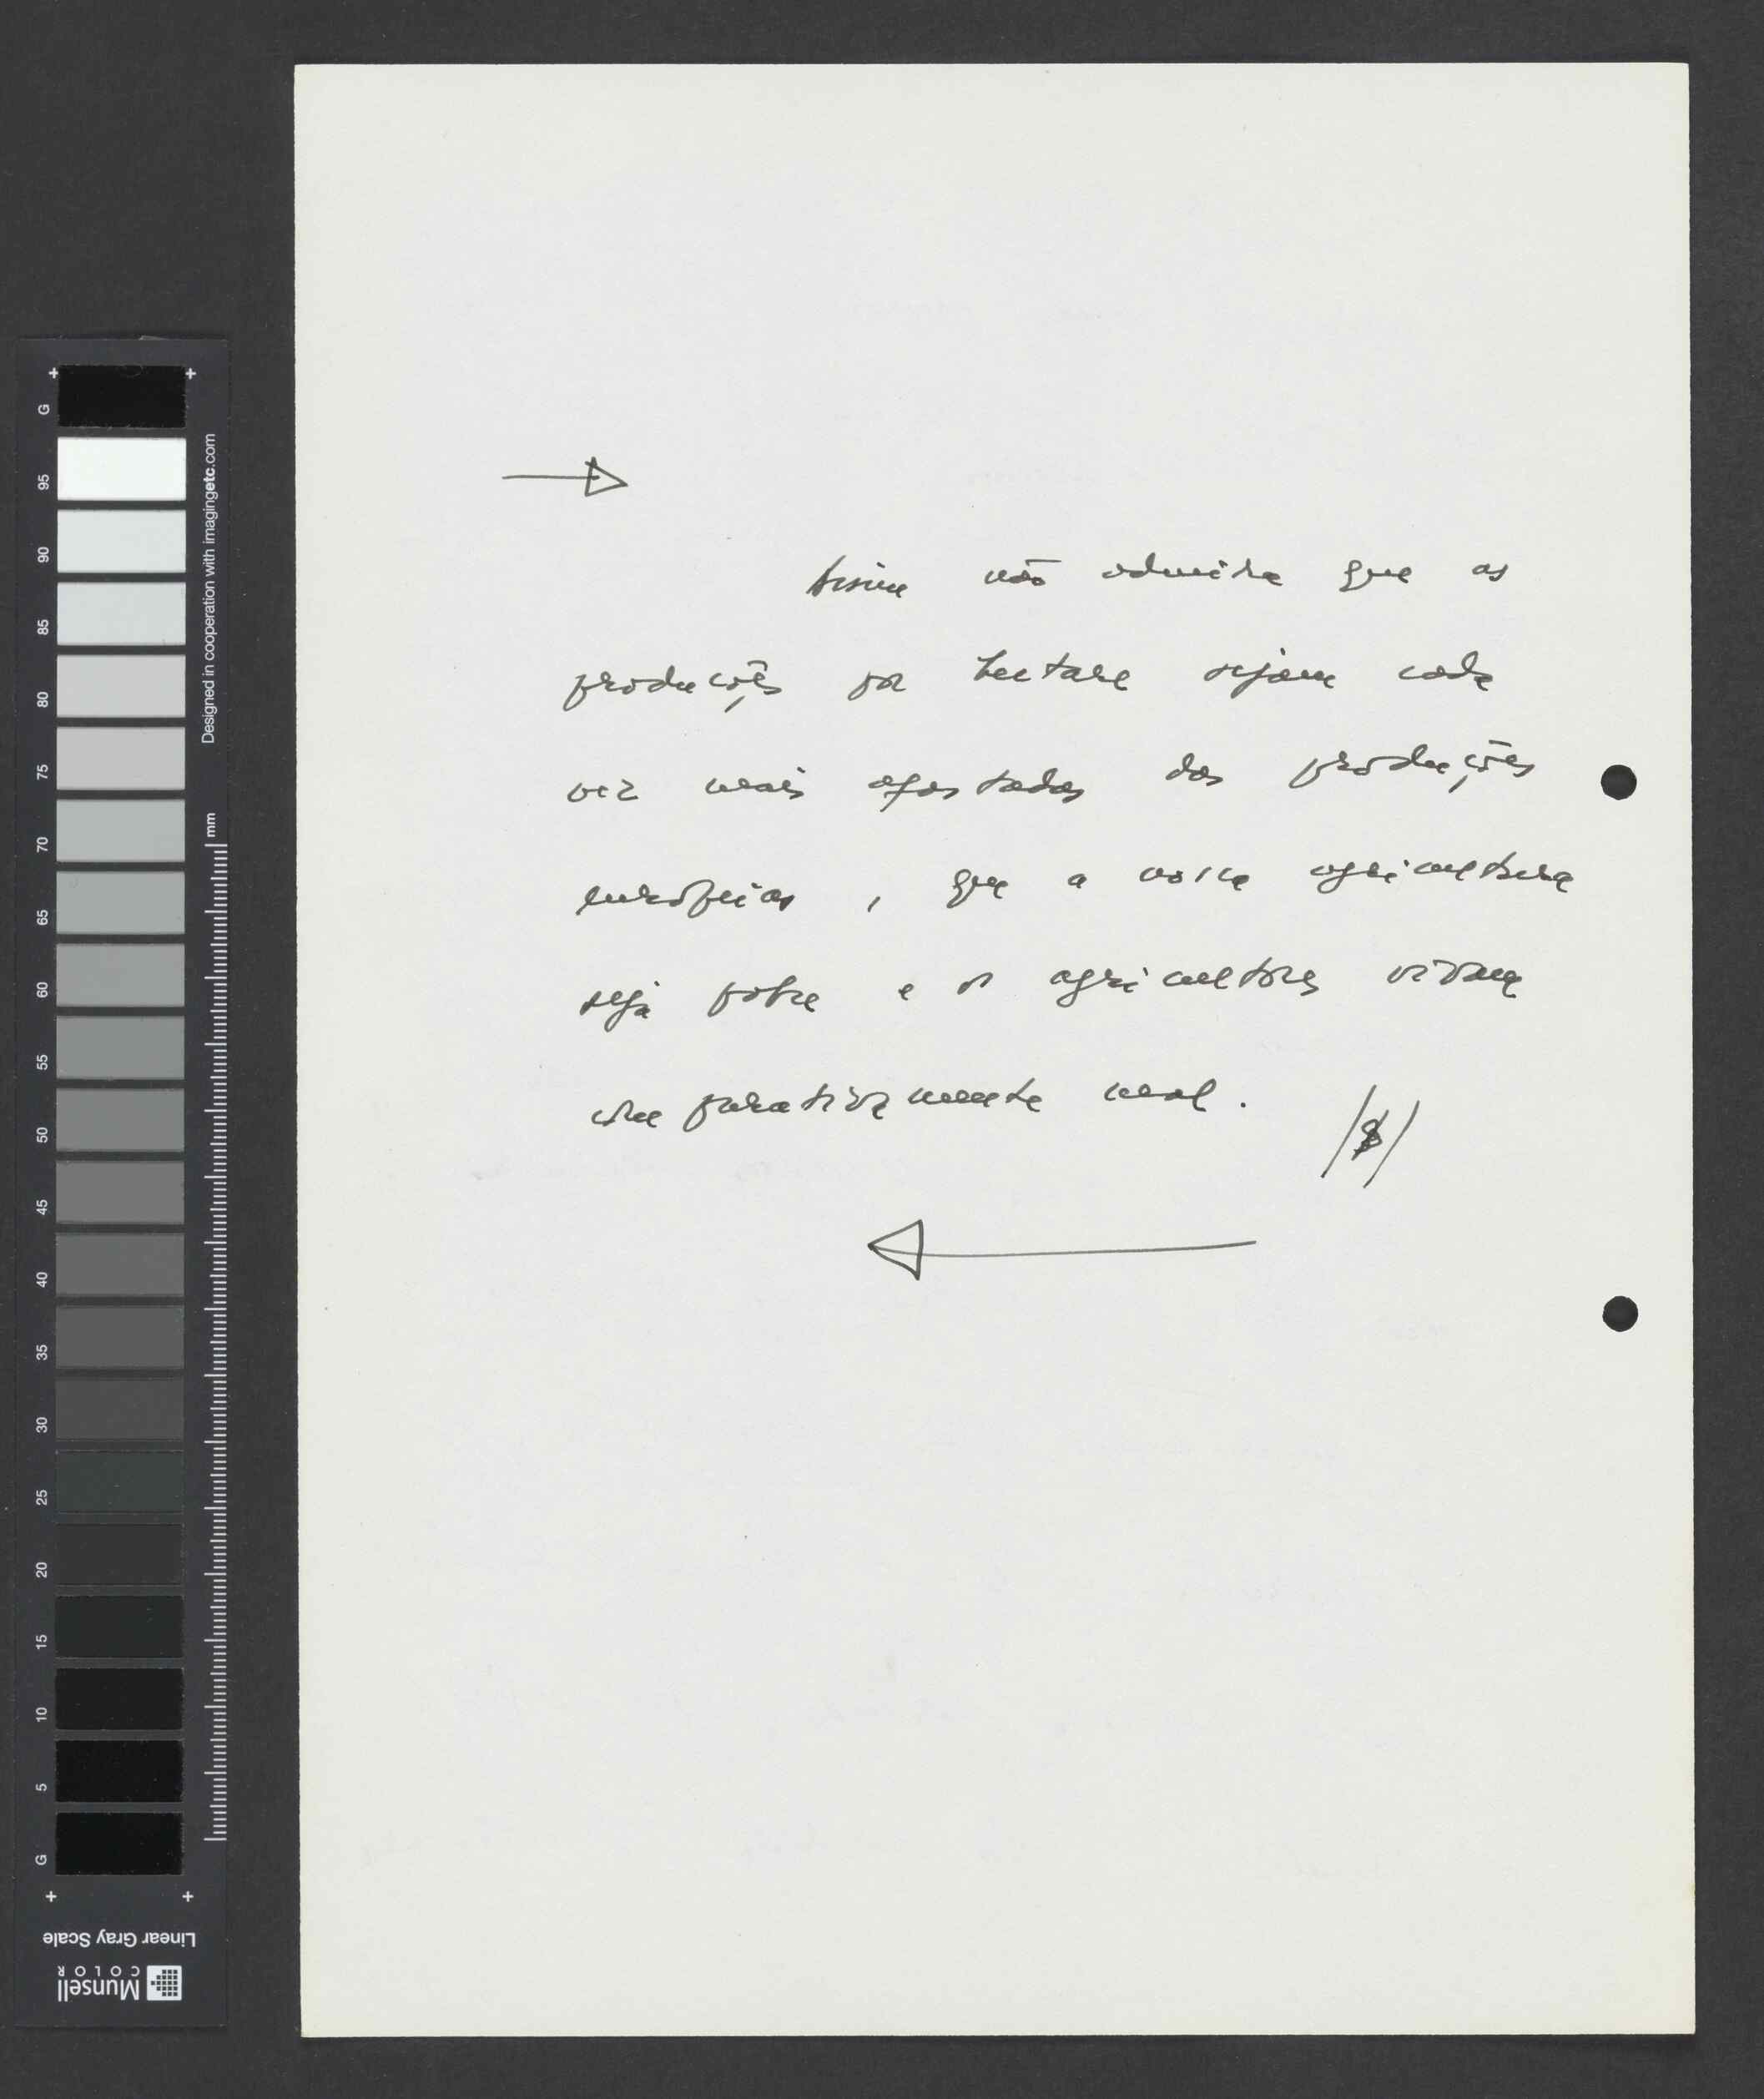 Assim não admira que as
produções por hectare sejam cada
vez mais afastadas das produções
europeias, que a nossa agricultura
seja pobre e os agricultores vivam
comparativamente mal.
G
95
90
85
80
75
70
65
60
55
50
45
40
35
30
25
20
15
10
5
G
Designed in cooperation with imagingetc.com
mm
Linear Gray Scale
Munsell
COLOR